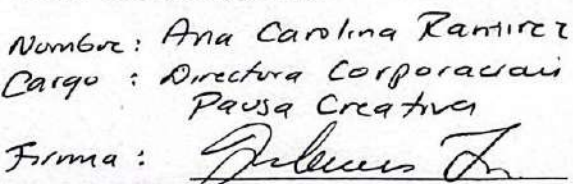 Nombre: Ana Carolina Ramirez
Cargo: Directora Corporación
Pausa Creativa
Firma: